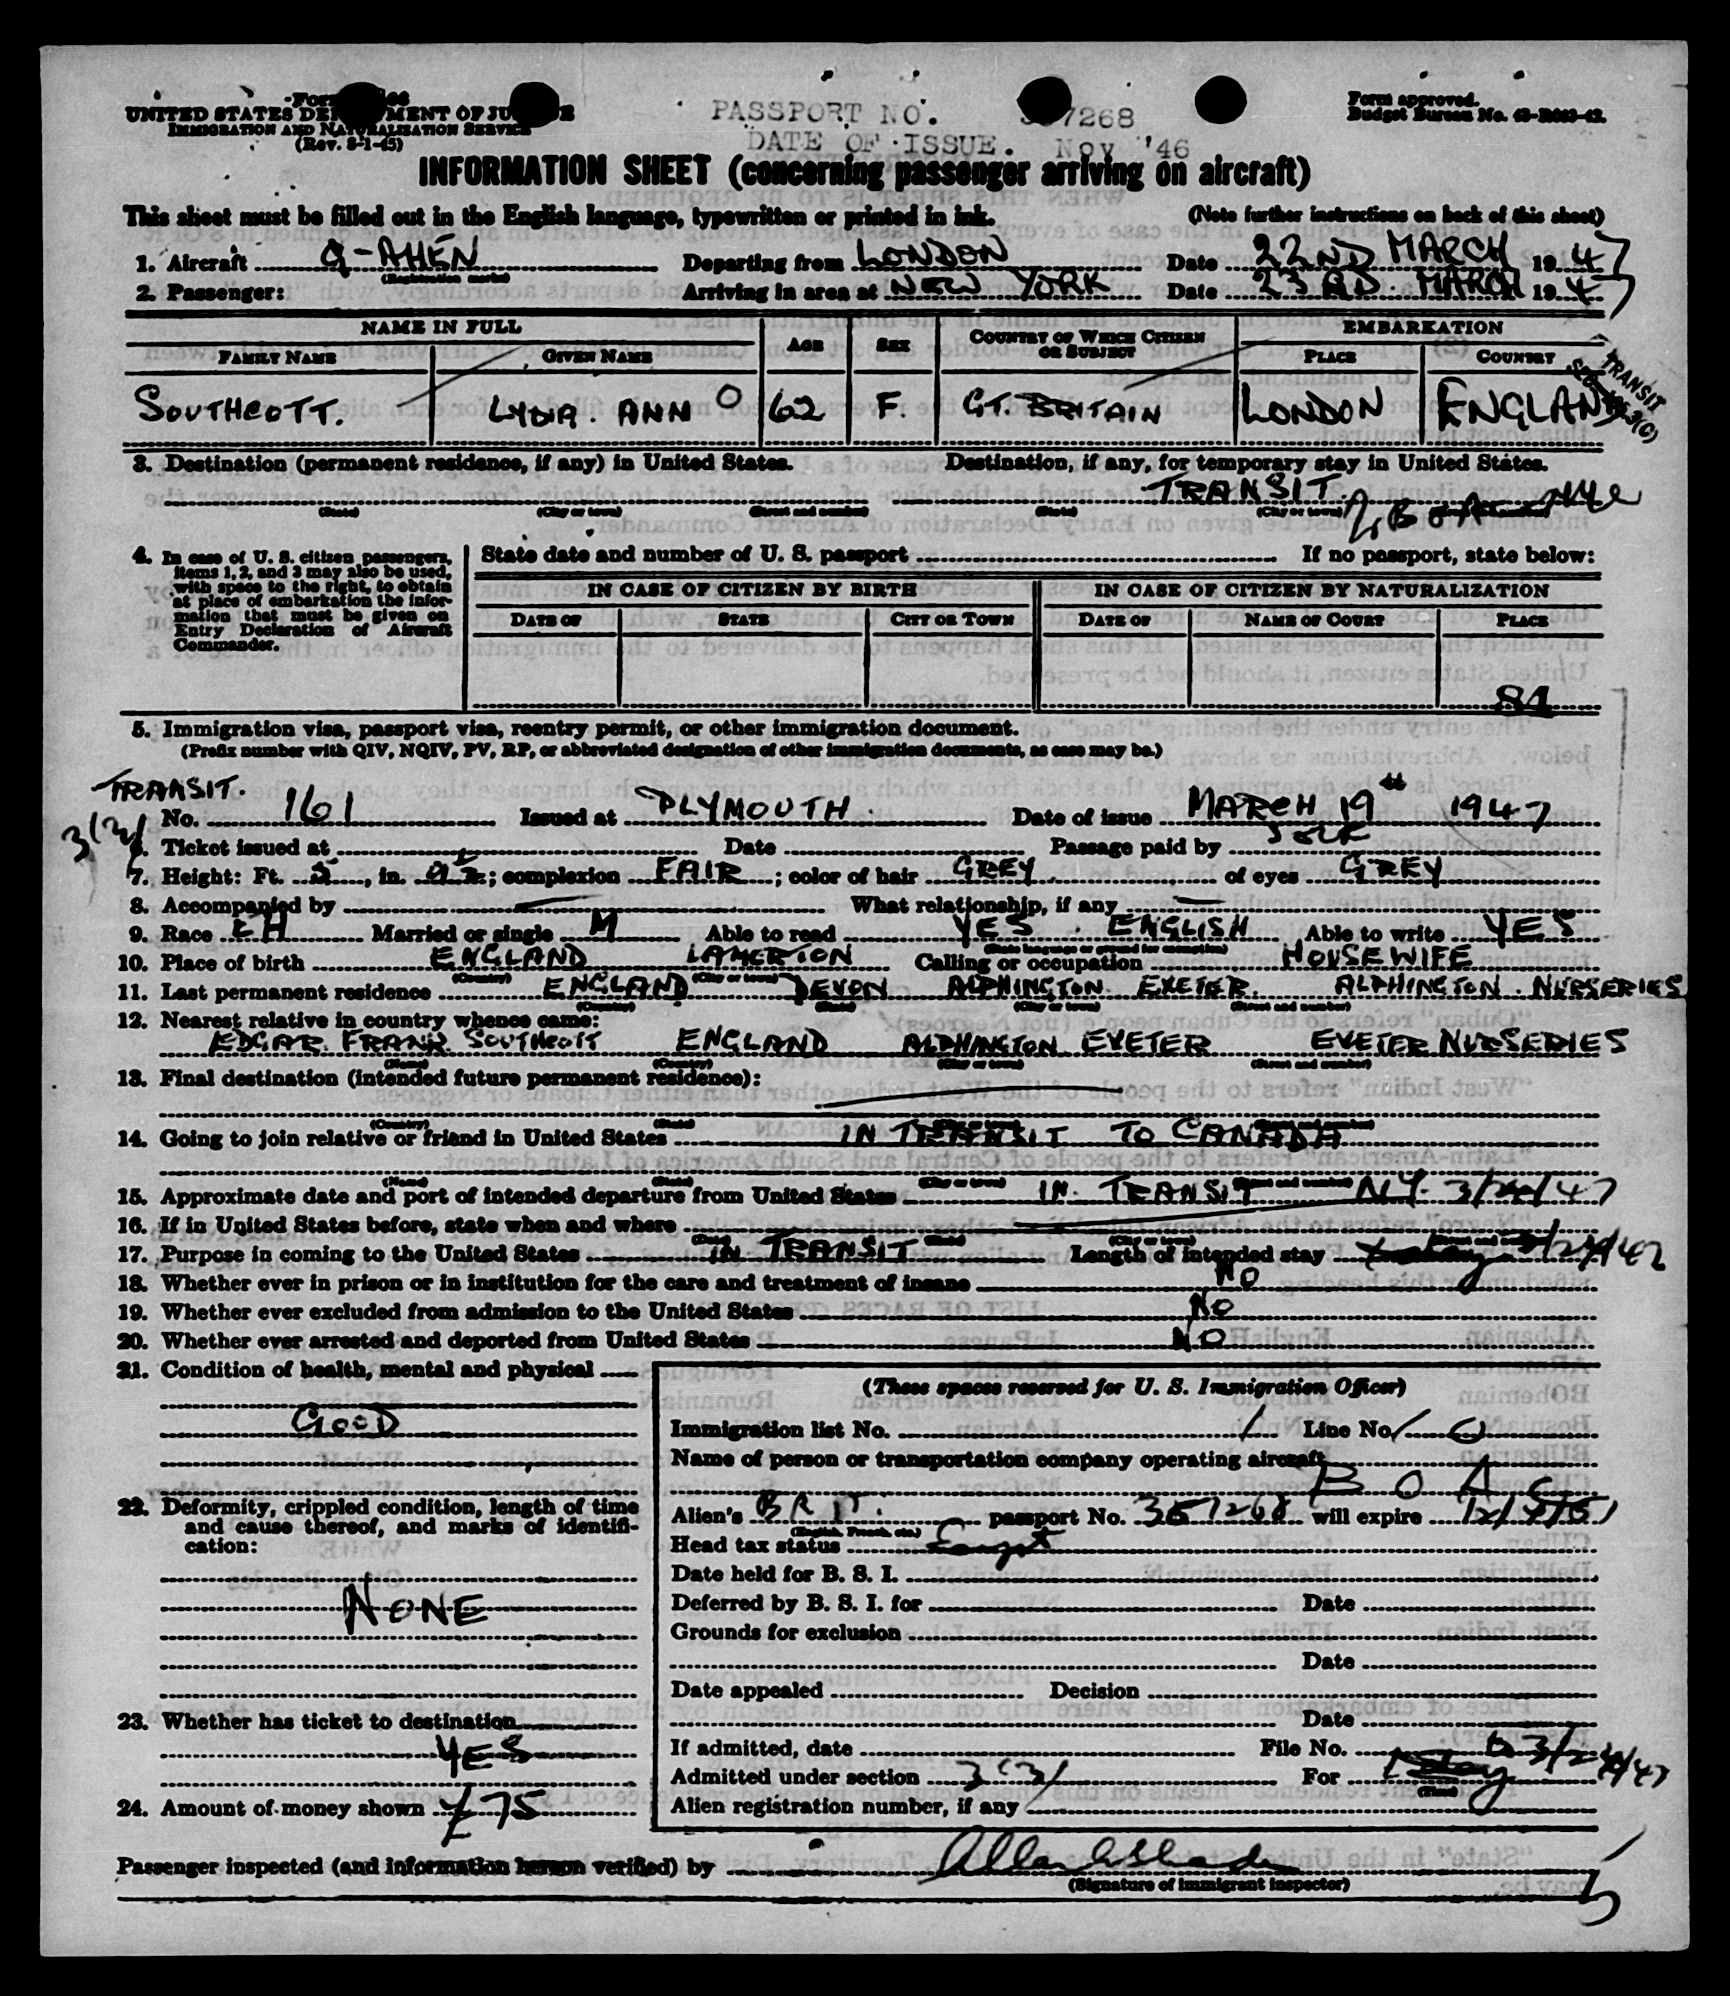 UNITED STATES DEPARTMENT OF JUSTICE
IMMIGRATION AND NATURALIZATION SERVICE
(Rev. 8-1-45)
PASSPORT NO. 7268
DATE OF ISSUE. Nov '46
Form approved.
Budget Bureau No.
INFORMATION SHEET (concerning passenger arriving on aircraft)
This sheet must be filled out in the English language, typewritten or printed in ink. (Note further instructions on back of this sheet)
1. Aircraft G-AHEN Departing from LONDON Date 22ND MARCH 1947
(Registration marks)
2. Passenger: Arriving in area at NEW YORK Date 23RD. MARCH 1947
NAME IN FULL AGE SEX COUNTRY OF WHICH CITIZEN OR SUBJECT EMBARKATION
FAMILY NAME GIVEN NAME PLACE COUNTRY
SOUTHCOTT. LYDIA. ANN 62 F. GT. BRITAIN LONDON ENGLAND
TRANSIT
3. Destination (permanent residence, if any) in United States. Destination, if any, for temporary stay in United States.
TRANSIT.
(State) (City or town) (Street and number) (State) (City or town)
4. In case of U. S. citizen passengers, items 1, 2, and 3 may also be used, with space to the right, to obtain at place of embarkation the information that must be given on Entry Declaration of Aircraft Commander.
State date and number of U. S. passport If no passport, state below:
IN CASE OF CITIZEN BY BIRTH IN CASE OF CITIZEN BY NATURALIZATION
DATE OF STATE CITY OR TOWN DATE OF NAME OF COURT PLACE
84
5. Immigration visa, passport visa, reentry permit, or other immigration document.
(Prefix number with QIV, NQIV, PV, RP, or abbreviated designation of other immigration documents, as case may be.)
TRANSIT.
No. 161 Issued at PLYMOUTH Date of issue MARCH 19th 1947
3(3)
6. Ticket issued at Date Passage paid by SELF
7. Height: Ft. 5, in. ; complexion FAIR; color of hair GREY of eyes GREY
8. Accompanied by — What relationship, if any —
9. Race EH Married or single M Able to read YES. ENGLISH Able to write YES
(State language or ground for exemption)
10. Place of birth ENGLAND LAMERTON Calling or occupation HOUSEWIFE
(Country) (City or town)
11. Last permanent residence ENGLAND DEVON ALPHINGTON. EXETER. ALPHINGTON. NURSERIES
(Country) (State) (City or town) (Street and number)
12. Nearest relative in country whence came:
EDGAR. FRANK. SOUTHCOTT ENGLAND ALPHINGTON EXETER EXETER NURSERIES
(Name) (Country) (City or town) (Street and number)
13. Final destination (intended future permanent residence):
(Country) (State) (City or town) (Street and number)
14. Going to join relative or friend in United States IN TRANSIT TO CANADA
(Name) (State) (City or town) (Street and number)
15. Approximate date and port of intended departure from United States IN TRANSIT N.Y. 3/24/47
16. If in United States before, state when and where
(Date) (State) (City or town) (Street and number)
17. Purpose in coming to the United States IN TRANSIT Length of intended stay
18. Whether ever in prison or in institution for the care and treatment of insane NO
19. Whether ever excluded from admission to the United States NO
20. Whether ever arrested and deported from United States NO
21. Condition of health, mental and physical
GOOD
22. Deformity, crippled condition, length of time and cause thereof, and marks of identification:
NONE
23. Whether has ticket to destination
YES
24. Amount of money shown £75
(These spaces reserved for U. S. Immigration Officer)
Immigration list No. 1 Line No.
Name of person or transportation company operating aircraft
B O A C
Alien's BRIT. passport No. 357268 will expire
(English, French, etc.)
Head tax status Exempt
Date held for B. S. I.
Deferred by B. S. I. for Date
Grounds for exclusion
Date
Date appealed Decision
Date
If admitted, date File No.
Admitted under section 3(3) For
(Time)
Alien registration number, if any
Passenger inspected (and information hereon verified) by
(Signature of immigrant inspector)